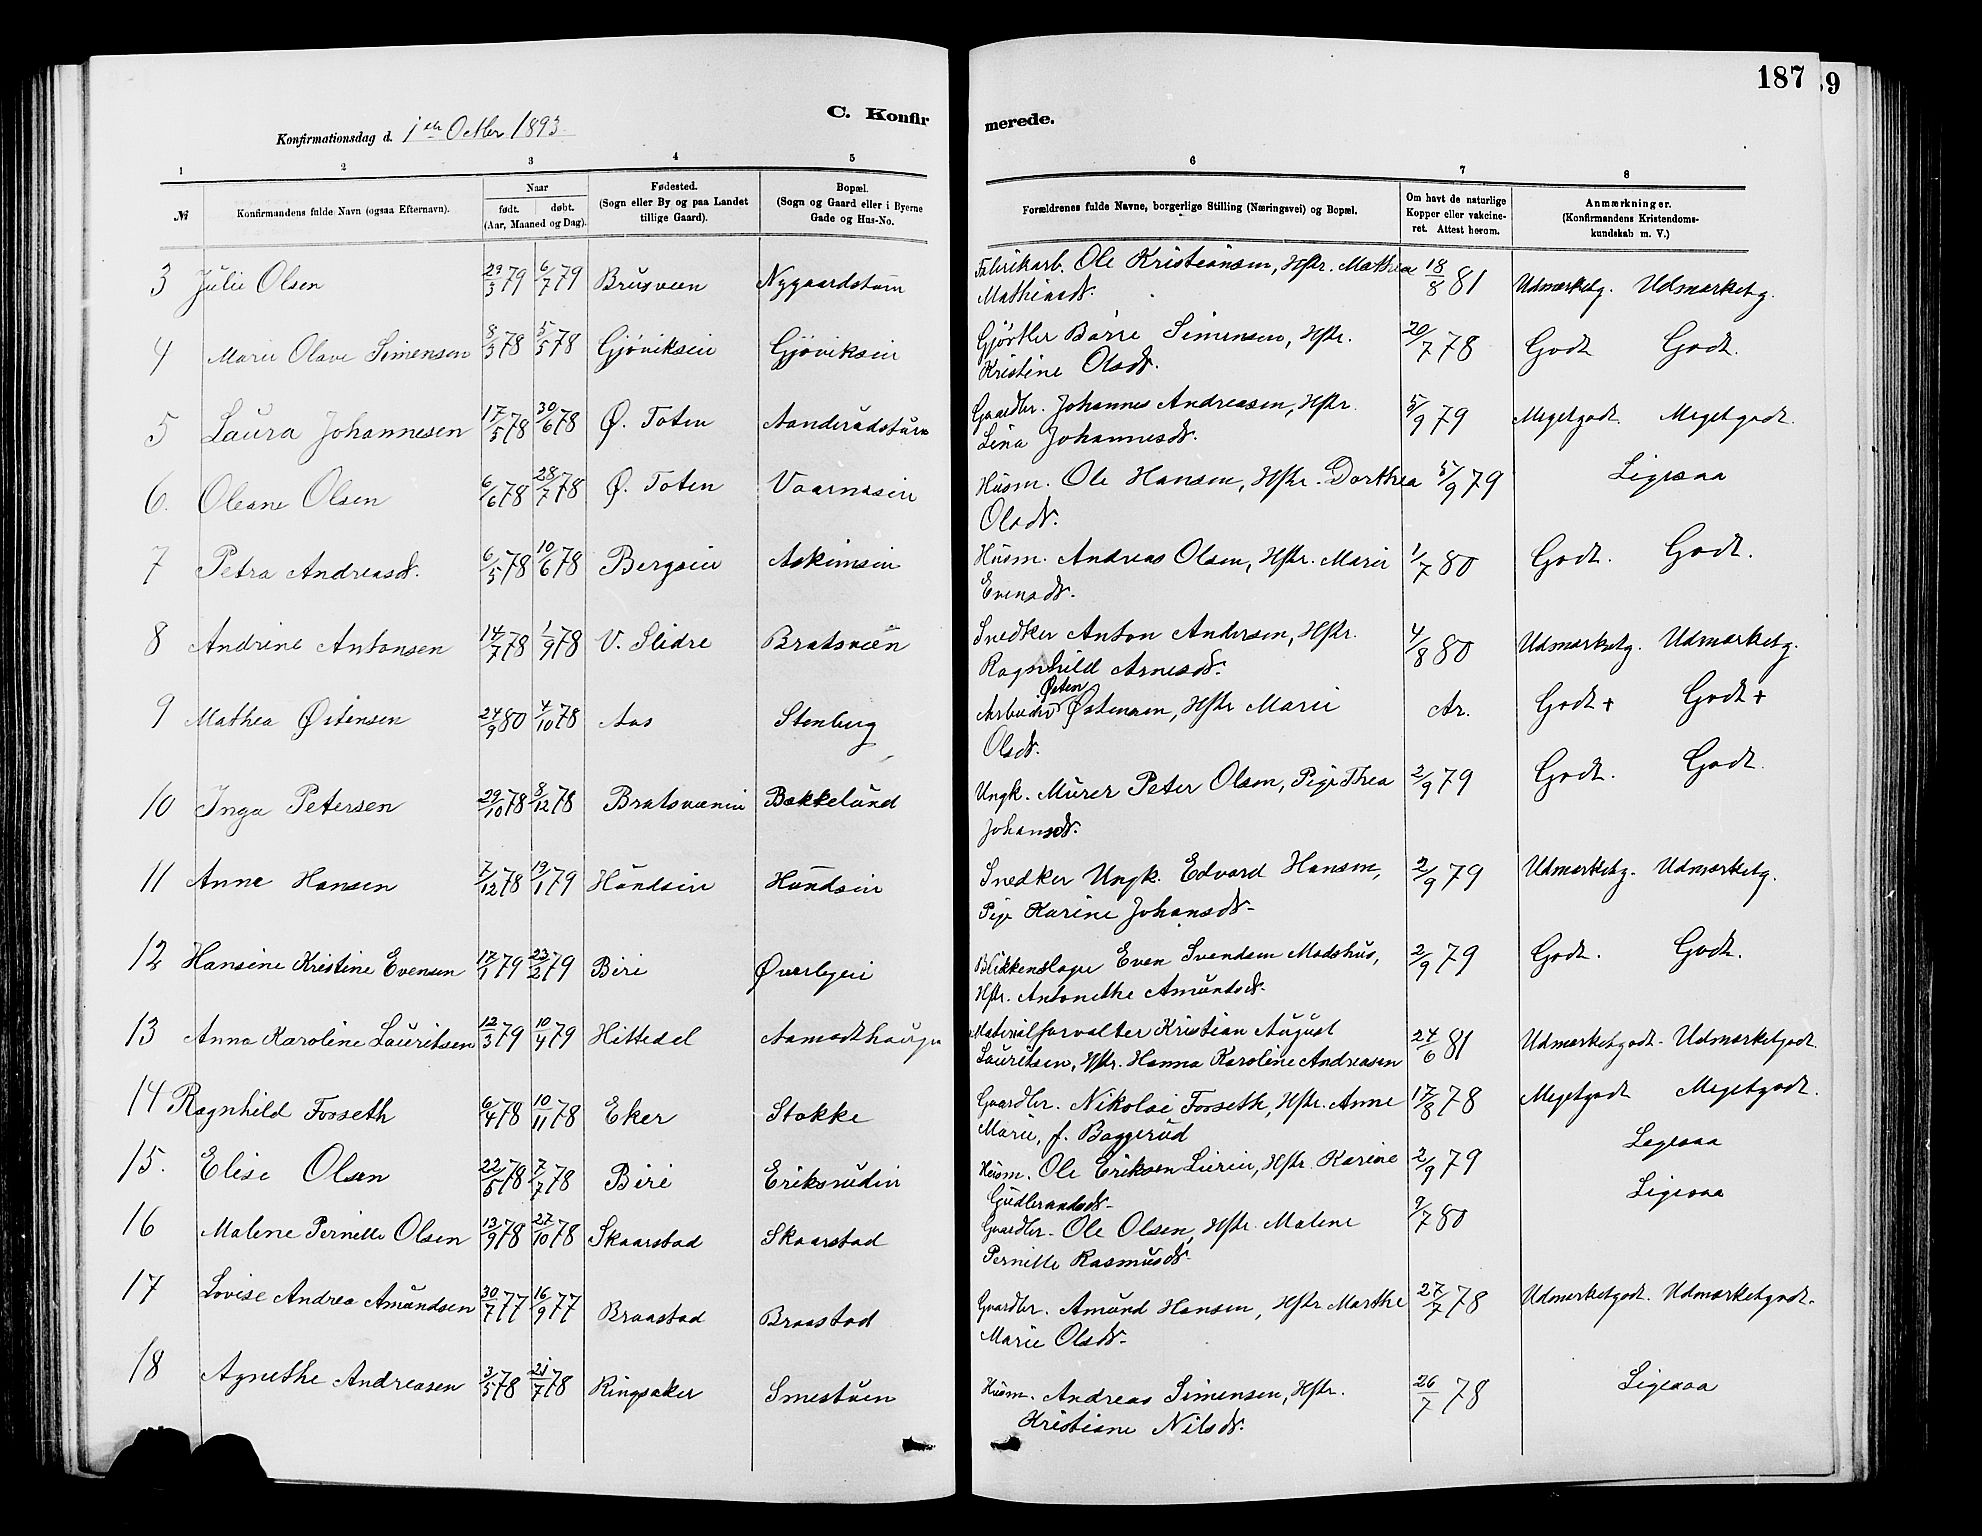 187
9
C. Konfirmerede.
Konfirmationsdag d. 1ste Octbr 1893.
1 2 3 4 5 6 7 8
№ Konfirmandens fulde Navn (ogsaa Efternavn). Naar født. døbt. (Aar, Maaned og Dag). Fødested. (Sogn eller By og paa Landet tillige Gaard). Bopæl. (Sogn og Gaard eller i Byerne Gade og Hus-No. Forældrenes fulde Navne, borgerlige Stilling (Næringsvei) og Bopæl. Om havt de naturlige Kopper eller vakcineret. Attest herom. Anmærkninger. (Konfirmandens Kristendomskundskab m. V.)
3 Julie Olsen 29/3 79 6/7 79 Brusveen Nygaardstuen Fabrikarb. Ole Kristiansen, Hstr. Mathea 18/8 81 Udmærketg. Udmærketg.
Mathiasd.
4 Marie Olave Simensen 8/3 78 5/5 78 Gjøviksein Gjøviksein Gjørtler Børre Simensen, Hstr. 20/7 78 Godt Godt.
Kristine Olsd.
5 Laura Johannesen 17/5 78 30/6 78 Ø. Toten Aanderudstuen Gaardbr. Johannes Andreasen, Hstr. 5/9 79 Megetgodt. Megetgodt.
Lina Johannesd.
6. Oleane Olsen 6/6 78 28/7 78 Ø. Toten Vaarnæsein Husm. Ole Hansen, Hstr. Dorthea 5/9 79 Ligesaa
Olsd.
7 Petra Andreasd. 6/5 78 10/6 78 Bergsein Askimsein Husm. Andreas Olsen, Hstr. Marie 1/7 80 Godt. Godt.
Evensd.
8 Andrine Antonsen 14/7 78 1/9 78 V. Slidre Bratsveen Snedker Anton Andersen, Hstr. 4/8 80 Udmærketg. Udmærketg.
Ragnhild Arnesd.
9 Mathea Østensen 24/9 80 4/10 78 Aas Stenberg Arbeider Østen Østensen, Hstr Marie Ar. Godt + Godt +
Olsd.
10 Inga Petersen 29/10 78 8/12 78 Bratsveenin Bækkelund Ungk. Murer Peter Olsen, Pige Thea 2/9 79 Godt. Godt.
Johansd.
11 Anne Hansen 7/12 78 19/1 79 Hundsein Hundsein Snedker Ungk. Edvard Hansen, 2/9 79 Udmærketg. Udmærketg.
Pige Karine Johansd.
12 Hansine Kristine Evensen 17/1 79 23/2 79 Biri Øverbyein Blikkenslager Even Svendsen Madshus, 2/9 79 Godt. Godt.
Hstr. Antonethe Amundsd.
13 Anna Karoline Lauritsen 12/3 79 10/4 79 Hittedal Aamodthaugen Materialforvalter Kristian August 24/6 81 Udmærketgodt. Udmærketgodt.
Lauritsen, Hstr. Hanna Karoline Andreasen
14 Ragnhild Fosseth 6/4 78 10/11 78 Eker Stokke Gaardbr. Nikolai Fosseth, Hstr. Anne 17/8 78 Megetgodt Megetgodt.
Marie, f. Baggerud
15. Elise Olsen 22/5 78 7/7 78 Biri Eriksrudein Husm. Ole Eriksen Lieriei, Hstr. Karine 2/9 79 Legesaa
Gudbrandsd.
16 Malene Pernille Olsen 13/9 78 27/10 78 Skaarstad Skaarstad Gaardbr. Ole Olsen, Hstr. Malene 9/7 80 Ligesaa
Pernille Rasmusd.
17 Lovise Andrea Amundsen 30/7 77 16/9 77 Braastad Braastad Gaardbr. Amund Hansen, Hstr. Marthe 27/7 78 Udmærketgodt. Udmærketgodt.
Marie Olsd.
18 Agnethe Andreasen 3/5 78 21/7 78 Ringsaker Smestuen Husm. Andreas Simensen, Hstr. 26/7 78 Ligesaa
Kristiane Nilsd.